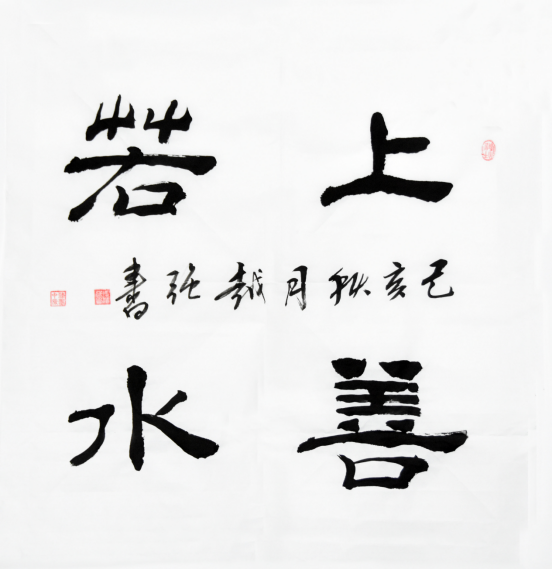 上善
若水
己亥秋月越强書